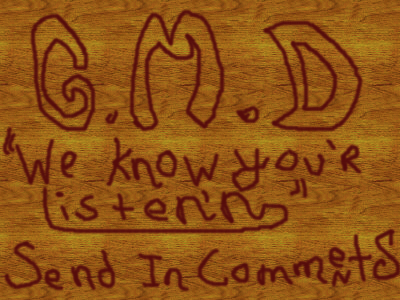 G.M.D
"We know you'r
listen'n"
Send In Comments